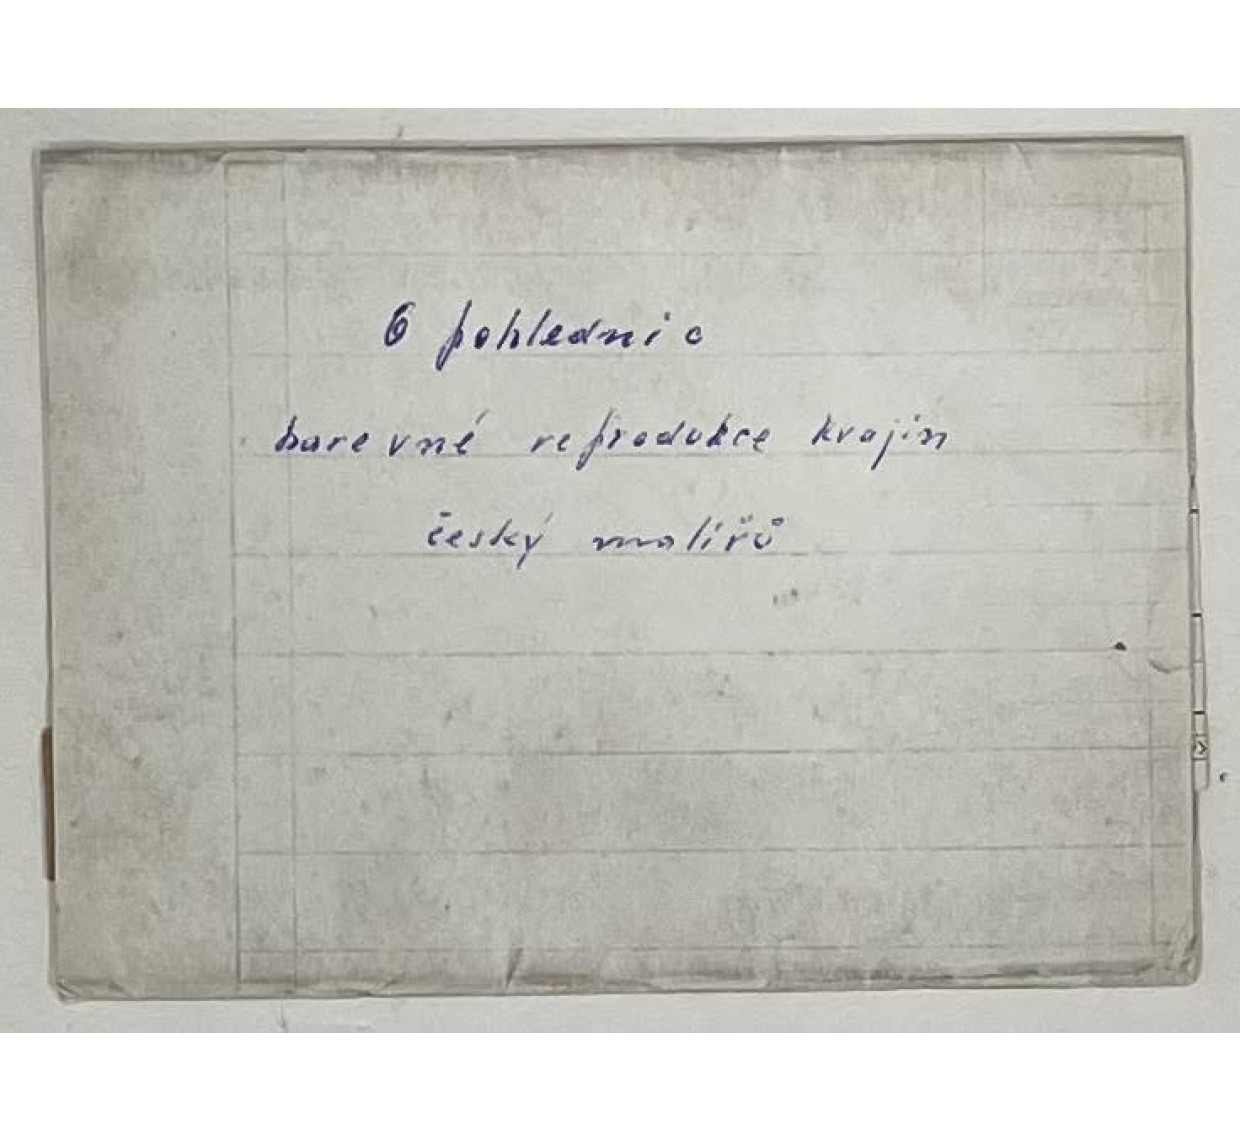 6 pohlednic
barevné reprodukce krajin
český malířů